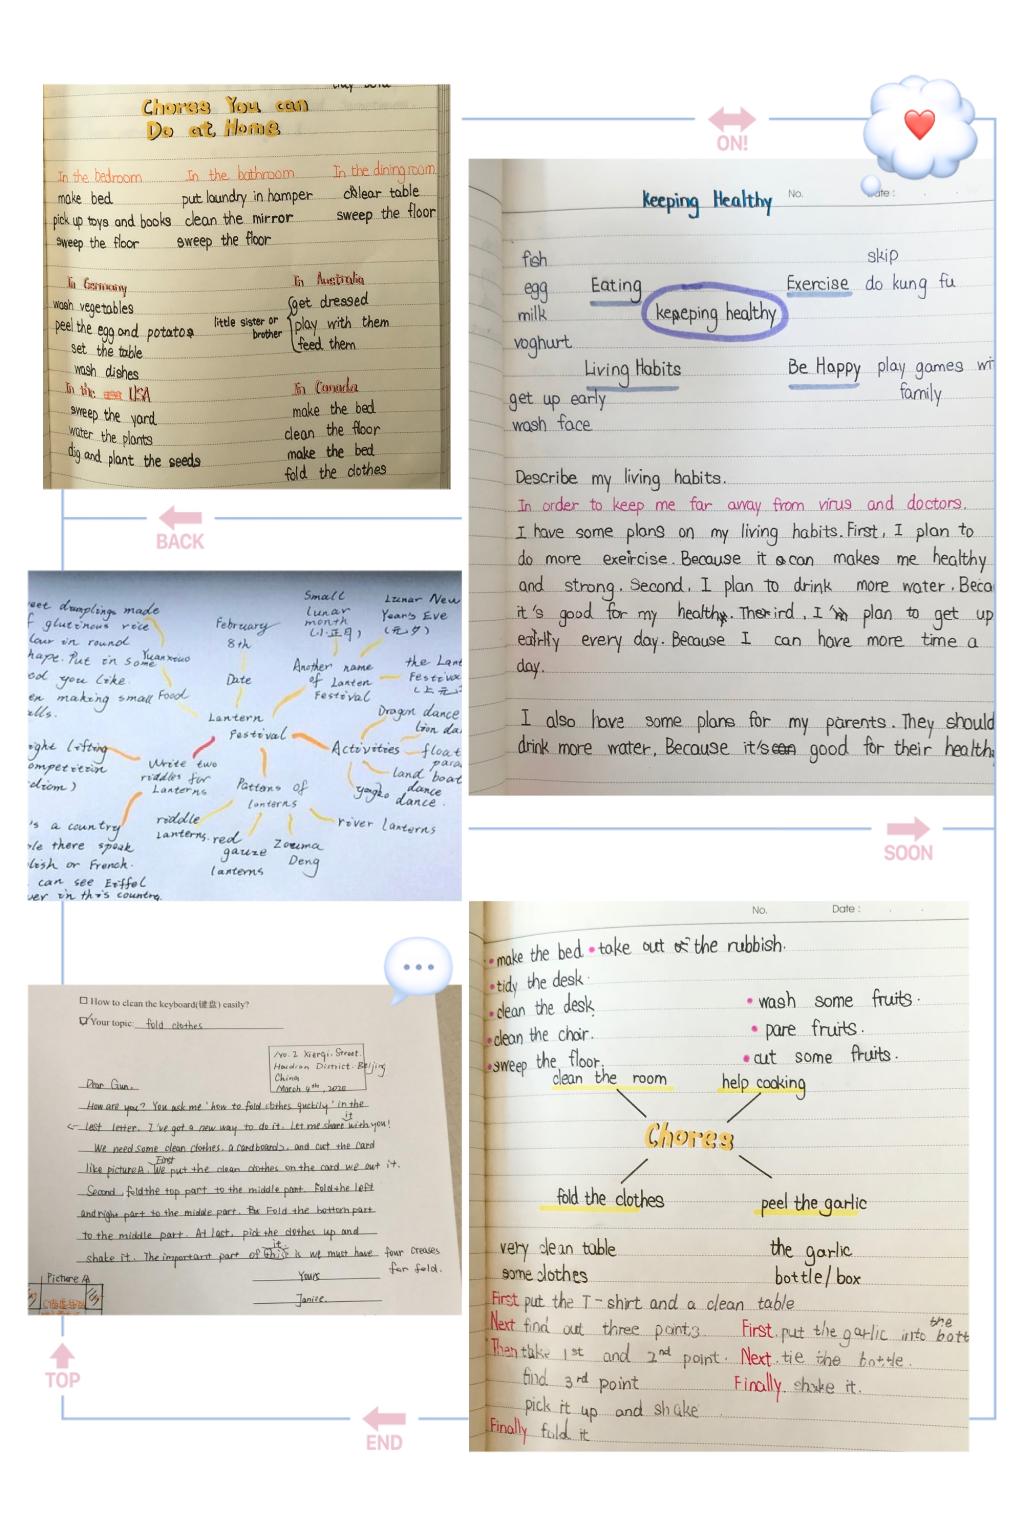 Chores You can
Do at Home
In the bedroom
make bed
pick up toys and books
sweep the floor
In the bathroom
put laundry in hamper
clean the mirror
sweep the floor
In the dining room
clear table
sweep the floor
In Germany
wash vegetables
peel the egg and potatos
set the table
wash dishes
In Australia
little sister or
brother
get dressed
play with them
feed them
In the USA
sweep the yard
water the plants
dig and plant the seeds
In Canada
make the bed
clean the floor
make the bed
fold the clothes
ON!
No.
Date :
Keeping Healthy
fish
egg
milk
yoghurt
Eating
keeping healthy
skip
Exercise do kung fu
Living Habits
get up early
wash face
Be Happy play games wi
family
Describe my living habits.
In order to keep me far away from virus and doctors.
I have some plans on my living habits. First, I plan to
do more exercise. Because it can makes me healthy
and strong. Second, I plan to drink more water. Beca
it's good for my health. Third, I plan to get up
early every day. Because I can have more time a
day.
I also have some plans for my parents. They should
drink more water, Because it's good for their health
BACK
eet dumplings made
f glutinous rice
lour in round
hape. Put in some
od you like.
en making small
alls.
Yuanxiao
Food
February
8th
Date
Small
lunar
month
(小正月)
Lunar New
Year's Eve
(元夕)
Another name
of Lanten
Festival
the Lant
Festiva
(上元
Lantern
Festival
Activities
Dragon dance
lion da
float
para
land boat
dance
yangko
dance.
ight lifting
ompetition
diom)
Write two
riddles for
Lanterns
's a country
ple there speak
lish or French.
can see Eiffel
wer in this country.
Pattens of
lanterns
riddle
Lanterns.
red
gauze
lanterns
Zouma
Deng
river lanterns
SOON
How to clean the keyboard(键盘) easily?
Your topic: fold clothes
No.2 Xierqi. Street.
Haidian District. Beijing
China
March 4th, 2020
Dear Gun,
How are you? You ask me 'how to fold clothes quckily' in the
last letter. I've got a new way to do it. Let me share it with you!
We need some clean clothes, a cardboards, and cut the card
like picture A. First We put the clean clothes on the card we cut it.
Second, fold the top part to the middle part. Fold the left
and right part to the middle part. Fold the bottom part
to the middle part. At last, pick the clothes up and
shake it. The important part of it is we must have four creases
for fold.
Yours
Janice.
Picture A
No.
Date :
make the bed
take out the rubbish.
tidy the desk
clean the desk
clean the chair.
sweep the floor.
wash some fruits.
pare fruits.
cut some fruits.
clean the room
help cooking
Chores
fold the clothes
peel the garlic
very clean table
some clothes
the garlic
bottle/box
First put the T-shirt and a clean table
Next find out three points
Then take 1st and 2nd point.
find 3rd point
pick it up and shake
Finally fold it
First. put the garlic into the bott
Next. tie the bottle.
Finally. shake it.
TOP
END